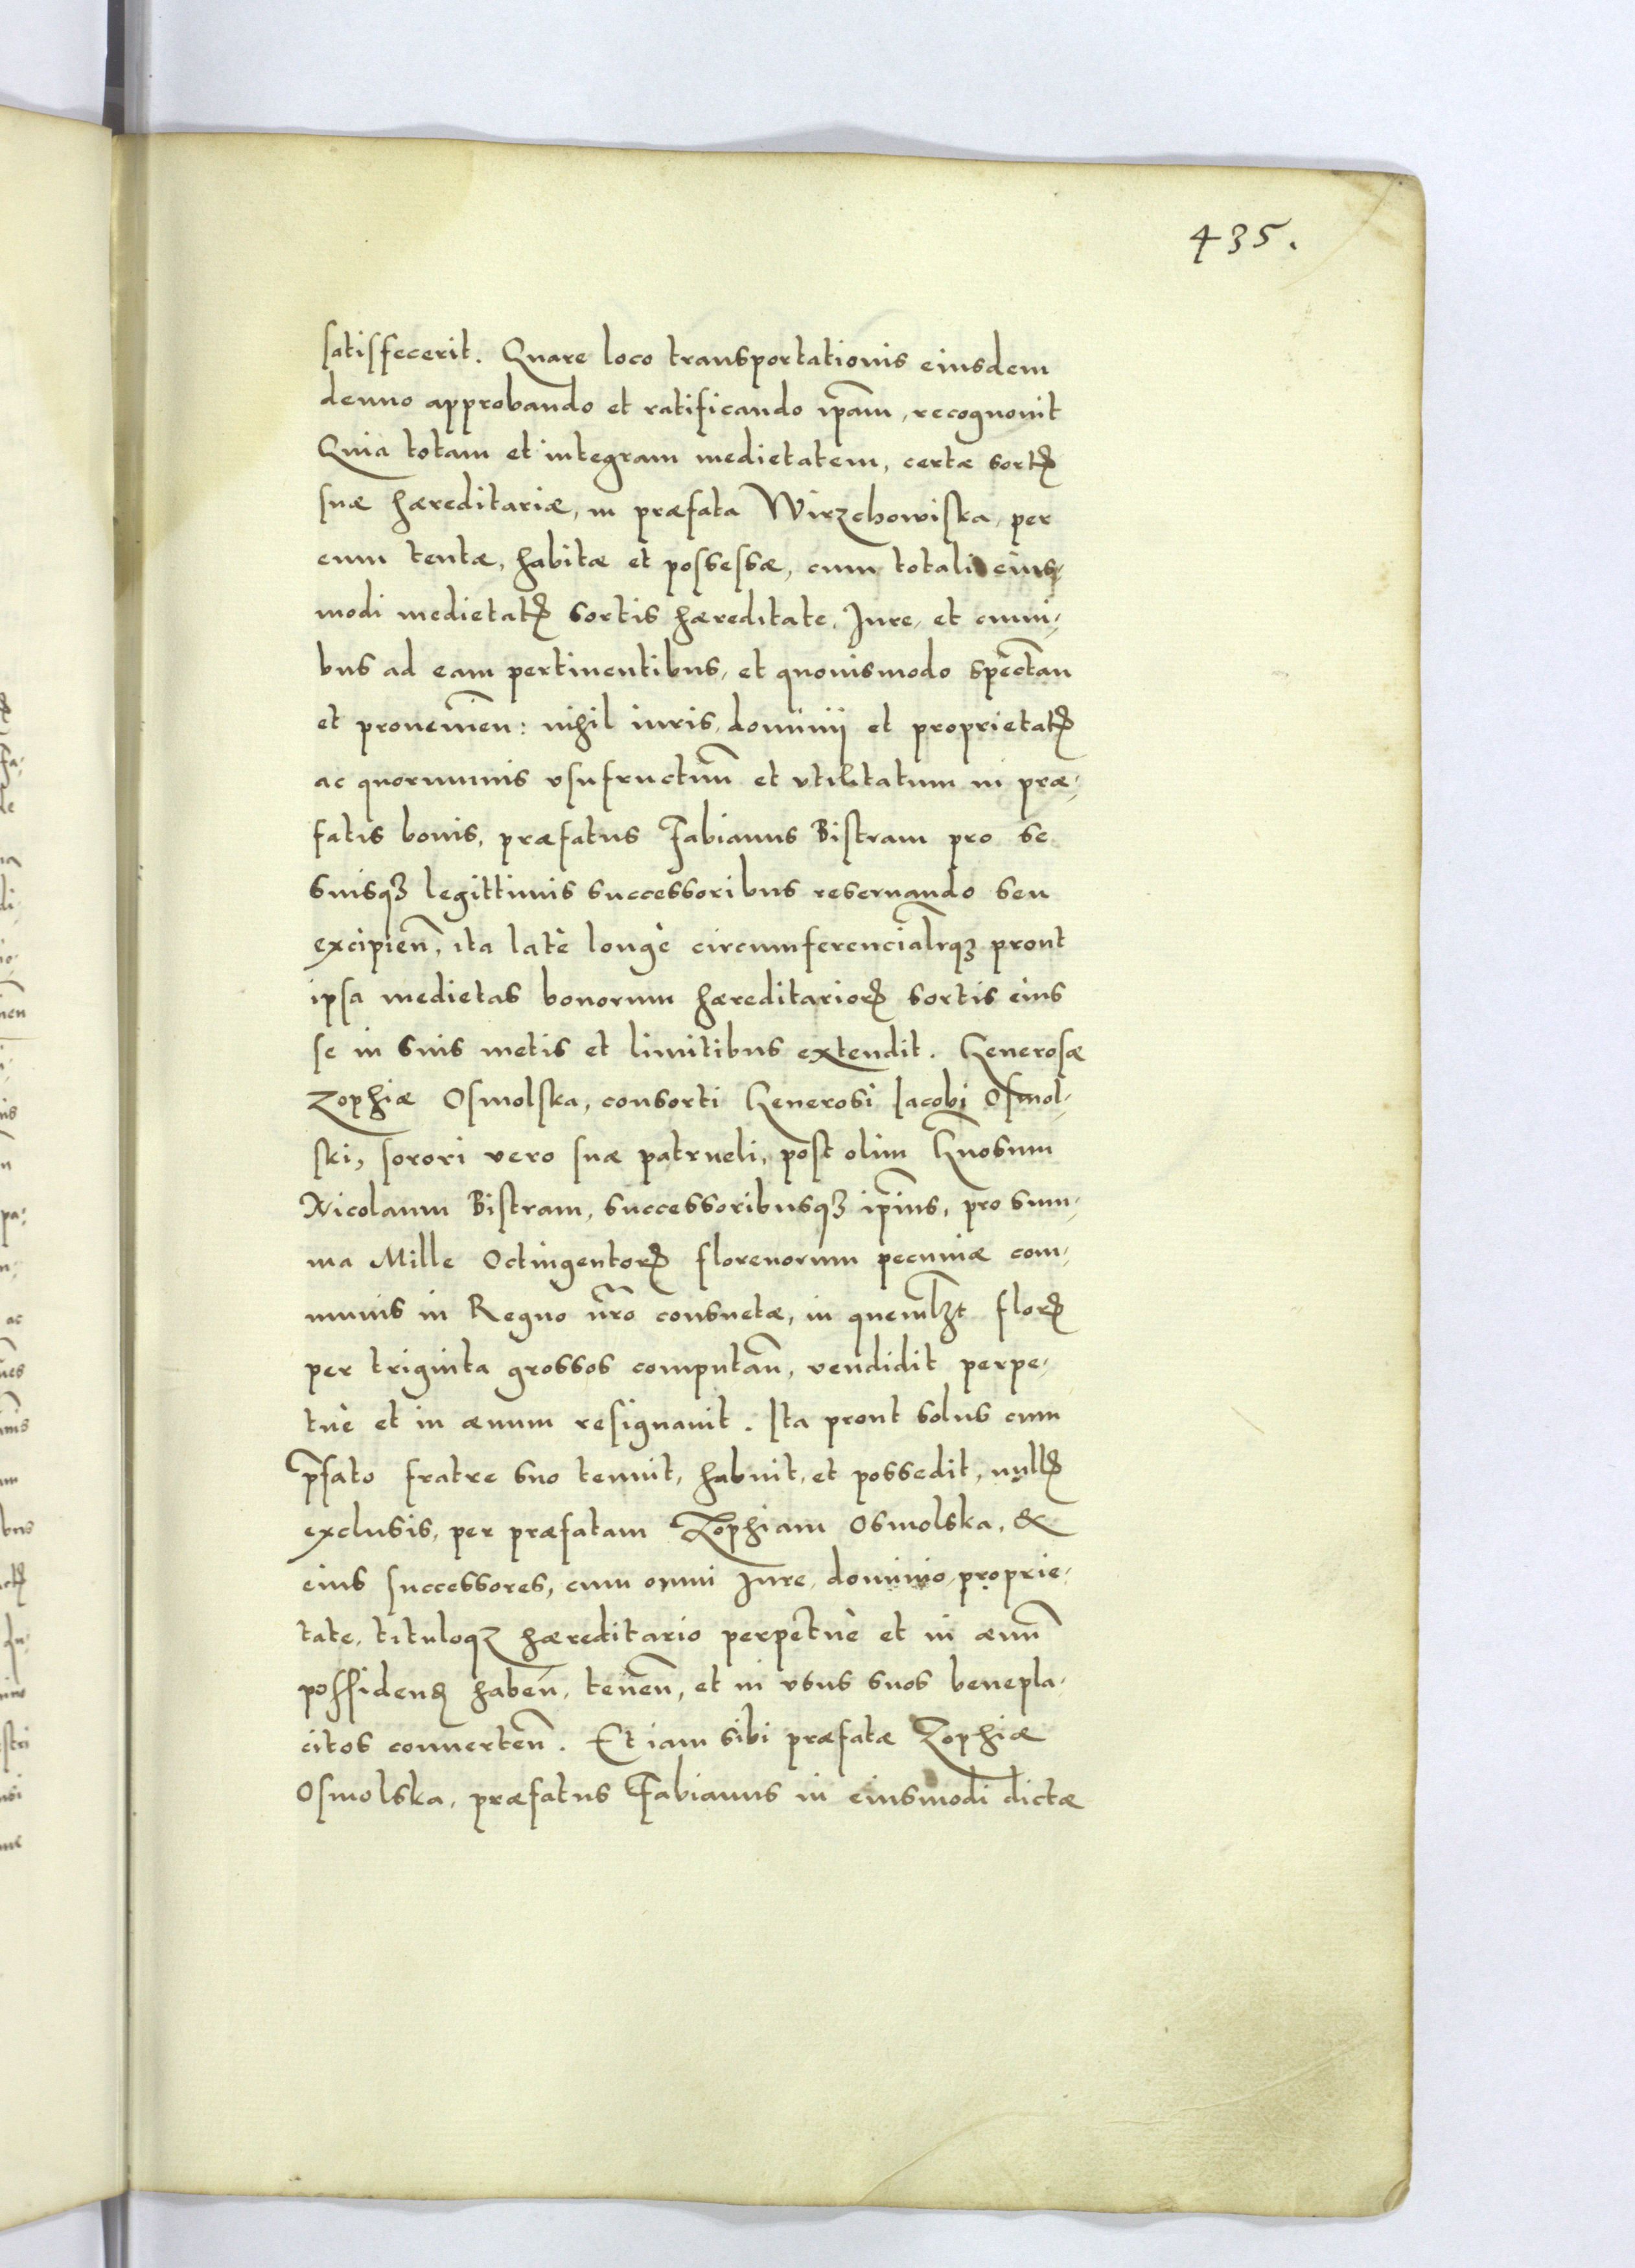 435.
satisfecerit. Quare loco transportationis eiusdem
denuo approbando et ratificando ip̃am, recognouit
Quia totam et integram medietatem, certæ sortꝭ
suæ hæreditariæ, in præfata Wirzchowiska, per
eum tentæ, habitæ et possessæ, cum totali eius-
modi medietatꝭ sortis hæreditate, Jure, et omni-
bus ad eam pertinentibus, et quouismodo spectañ
et prouenieñ: nihil iuris, dominij et proprietatꝭ
ac quorumuis vsufructuũ et vtilitatum in præ-
fatis bonis, præfatus Fabianus Bistram pro se
suisqꝫ legittimis successoribus reseruando seu
excipieñ, ita latè longè circumferencialr̃qꝫ prout
ipsa medietas bonorum hæreditarioꝝ sortis eius
se in suis metis et limitibus extendit. Generosæ
Zophiæ Osmolska, consorti Generosi Jacobi Osmol-
ski, sorori vero suæ patrueli, post olim Gñosum
Nicolaum Bistram, successoribusqꝫ ip̃ius, pro sum-
ma Mille Octingentoꝝ florenorum pecuniæ com-
munis in Regno nr̃o consuetæ, in quemlꝫt floꝝ
per triginta grossos computañ, vendidit perpe-
tuè et in æuum resignauit. Ita prout solus cum
p̃fato fratre suo tenuit, habuit, et possedit, nullꝭ
exclusis, per præfatam Zophiam Osmolska, &
eius successores, cum omni Jure, dominio, proprie-
tate, tituloqꝫ hæreditario perpetuè et in æuũ
possidenꝭ habeñ, teneñ, et in vsus suos benepla-
citos conuerteñ. Et iam sibi præfatæ Zophiæ
Osmolska, præfatus Fabianus in eiusmodi dictæ